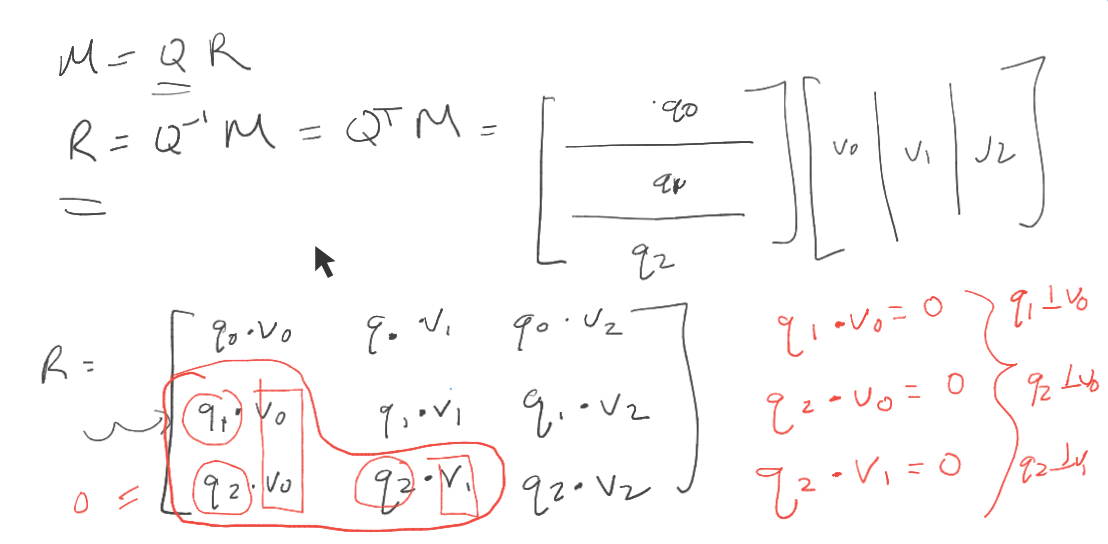 M = Q R
R = Q⁻¹ M = Qᵀ M = [ q0 / q1 / q2 ] [ v0 | v1 | v2 ]
R = [ q0 · v0 q0 · v1 q0 · v2
q1 · v0 q1 · v1 q1 · v2
0 = q2 · v0 q2 · v1 q2 · v2 ]
q1 · v0 = 0 } q1 ⊥ v0
q2 · v0 = 0 q2 ⊥ v0
q2 · v1 = 0 q2 ⊥ v1